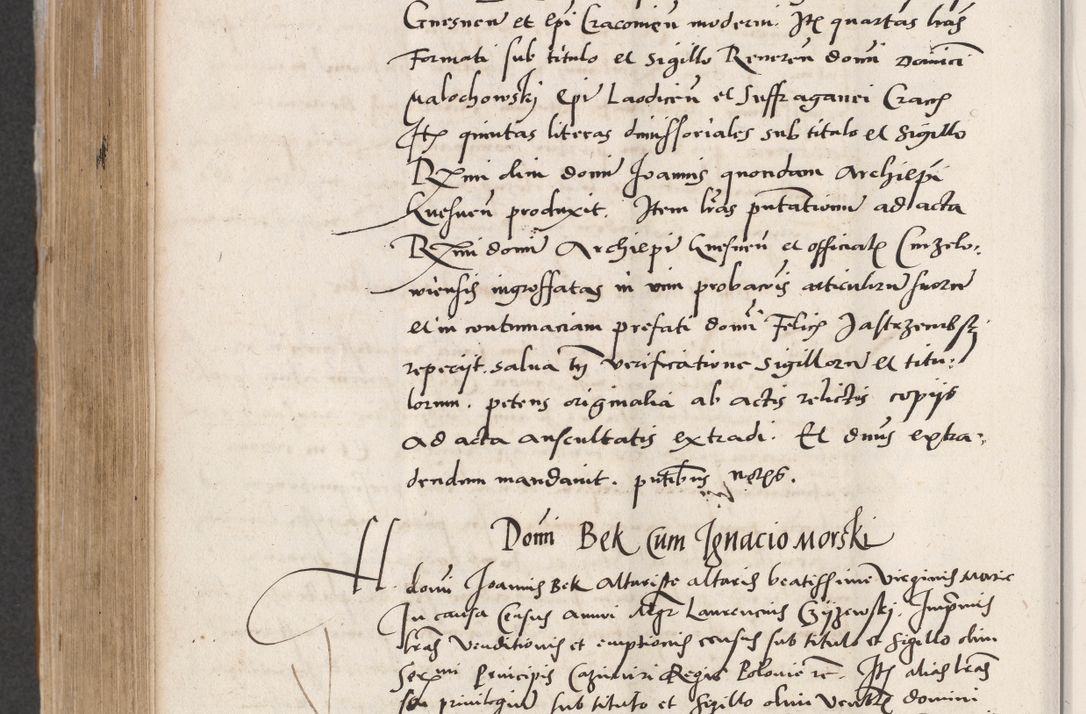 Gnesnen et Epi Cracovien moderni. Itē quartas lras
Formati sub titulo et sigillo Reveren domi Dominici
Malochowski Epi Laodicen et Suffraganei Cracoȝ
Itē quintas literas dimissoriales sub titulo et sigillo
Rssmi olim domi Joannis quondam Archiepi
Gnesnen produxit. Item lras putationū ad acta
Rssmi domi Archiepi Gnesnen et officialē Curzelo,
wiensis ingrossatas in vim probacōis articulorū suorū
et in contumaciam prefati domi Felicis Jastrzembsȝ
reperijt. salva tn verificatione sigillorū et titu,
lorum. petens originalia ab actis relictis copijs
ad acta auscultatis extradi. Et dnus extra,
dendum mandavit. putibus nothis.
Domi Bek Cum Ignacio Morski
H. domi Joannis Bek Altariste altaris beatissime virginis Marie
In causa Census annui Mgr Laurencius Gyzewski, Imprimis
lras Venditionis et emptionis census sub titulo et sigillo olim
Sermi Principis Cazimiri Regis Polonie &c. Itē alias lras
seu privilegium sub titulo et sigillo olim Venebl domini